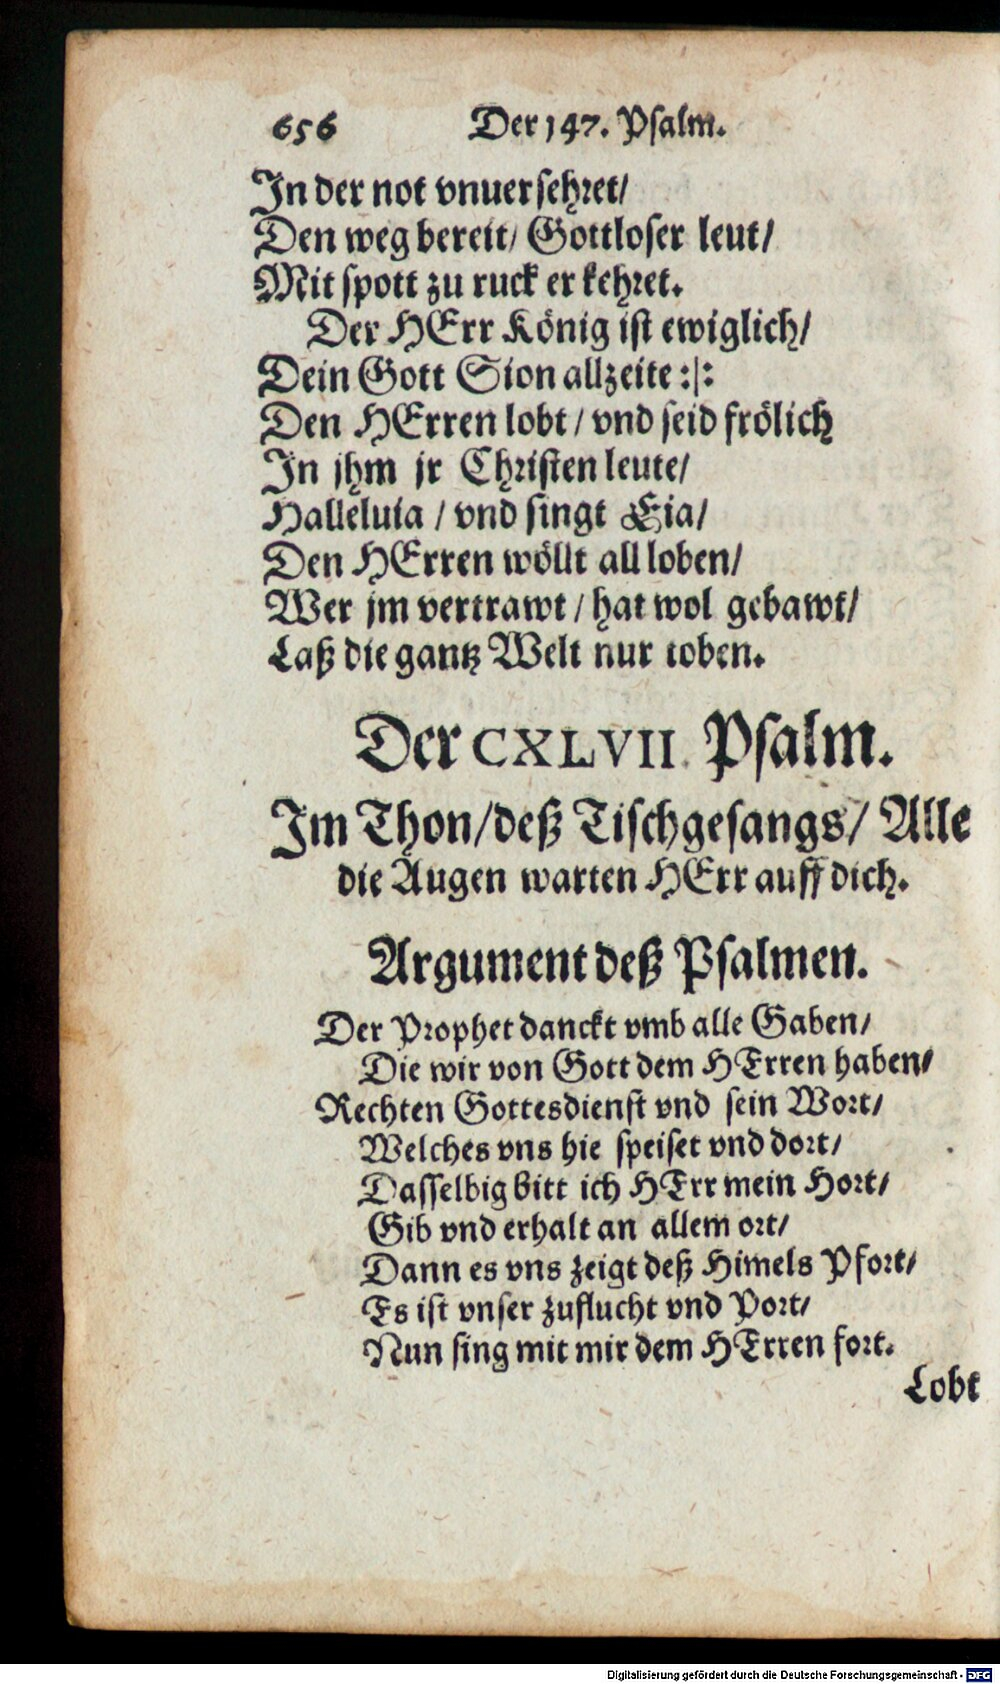 656 Der 147. Psalm.
In der not vnuersehret/
Den weg bereit/ Gottloser leut/
Mit spott zu ruck er kehret.
Der HErr König ist ewiglich/
Dein Gott Sion allzeite :|:
Den HErren lobt / vnd seid frölich
In jhm jr Christen leute/
Halleluia / vnd singt Eia/
Den HErren wöllt all loben/
Wer jm vertrawt / hat wol gebawt/
Laß die gantz Welt nur toben.
Der CXLVII. Psalm.
Im Thon/deß Tischgesangs/ Alle
die Augen warten HErr auff dich.
Argument deß Psalmen.
Der Prophet danckt vmb alle Gaben/
Die wir von Gott dem HErren haben/
Rechten Gottesdienst vnd sein Wort/
Welches vns hie speiset vnd dort/
Dasselbig bitt ich HErr mein Hort/
Gib vnd erhalt an allem ort/
Dann es vns zeigt deß Himels Pfort/
Es ist vnser zuflucht vnd Port/
Nun sing mit mir dem HErren fort.
Lobt
Digitalisierung gefördert durch die Deutsche Forschungsgemeinschaft - DFG